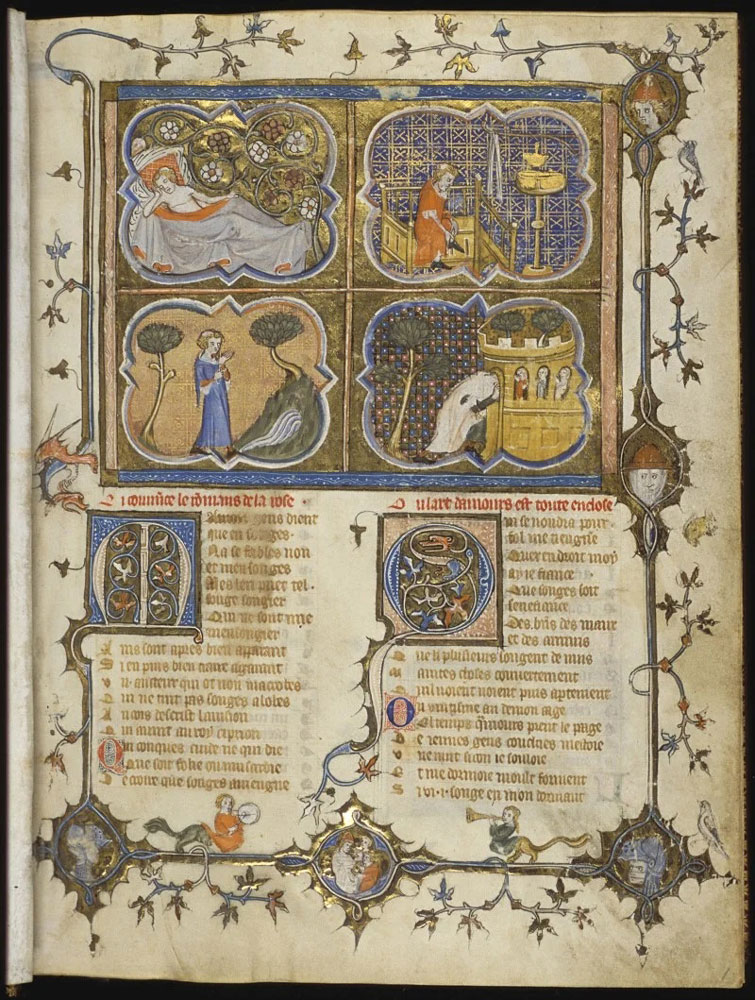 Ci comence le romans de la rose
Ou lart damours est toute enclose
Maintes gens dient
que en songes
Na se fables non
et mensonges
Mes len puet tel
songe songier
Qui ne sont mie
mensongier
Ains sont apres bien aparant
Si en puis bien traire agarant
qui ot non macrobes
Qui ne tint pas songes a lobes
Aincois descrist lavision
Qui avint au roy ciprion
Qui conques cuide ne qui die
Que soit folie ou musardie
De croire que songes aviengne
Qui se voudra pour
fol me tiengne
Quar en droit moy
ay ie fiance
Que songes soit
senefiance
Des biens des maus
et des annuis
Que li plusieurs songent de nuis
Maintes choses couvertement
Quil voient puis apertement
Ou vintisme an de mon aage
Ou temps quamours prent le page
De iennes gens couchies mestoie
Une nuit si com ie souloie
Et me dormoie moult forment
Si vi .i. songe en mon dormant